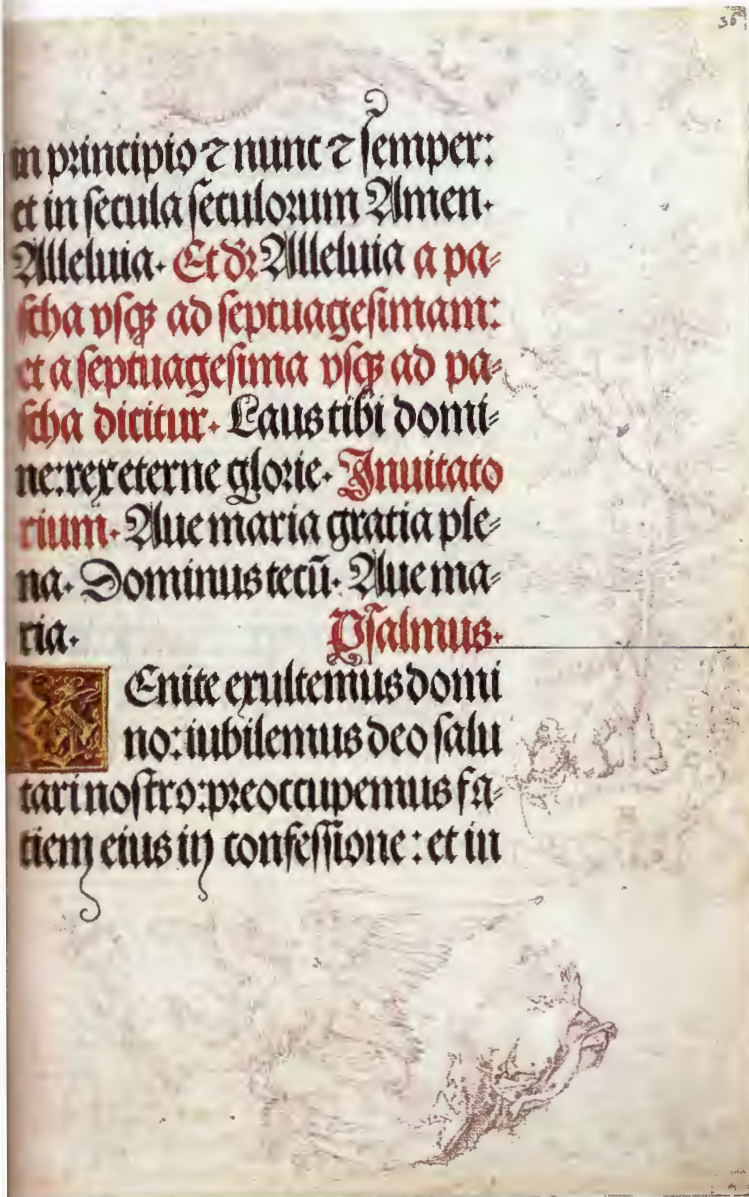 36
in principio ⁊ nunc ⁊ semper:
et in secula seculorum Amen.
Alleluia. Et dr̄ Alleluia a pa⸗
scha vsqꝫ ad septuagesimam:
et a septuagesima vsqꝫ ad pa⸗
scha dicitur. Laus tibi domi⸗
ne: rex eterne glorie. Inuitato
rium. Aue maria gratia ple⸗
na. Dominus tecū. Aue ma⸗
ria. Psalmus.
VEnite exultemus domi
no: iubilemus deo salu
tari nostro: preoccupemus fa⸗
ciem eius in confessione: et in